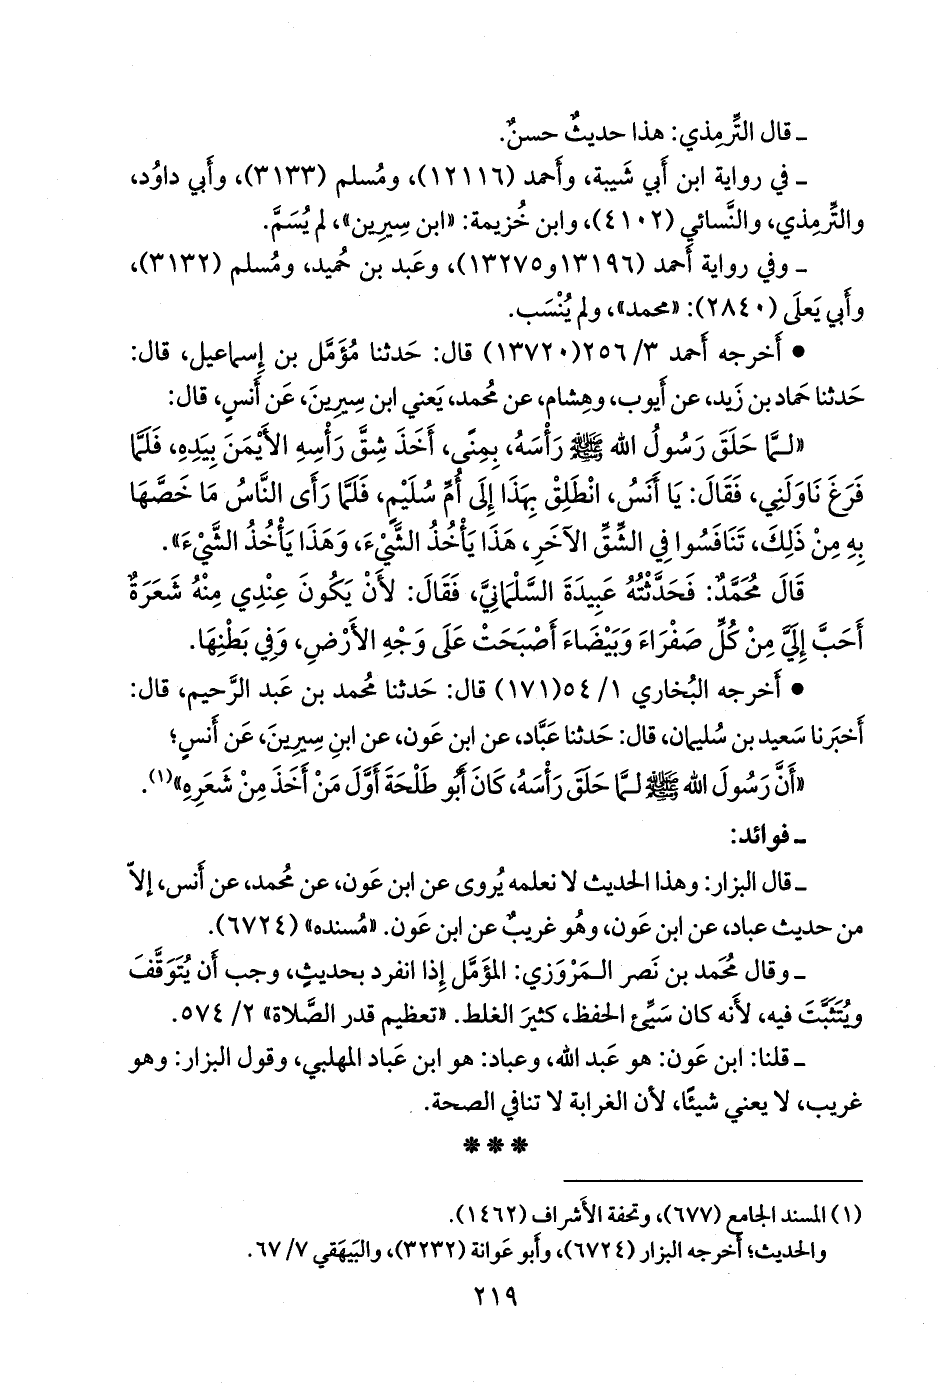 ـ قال التِّرمِذي: هذا حديثٌ حسنٌ.
ـ في رواية ابن أَبي شَيبة، وأَحمد (١٢١١٦)، ومُسلم (٣١٣٣)، وأَبي داوُد،
والتِّرمِذي، والنَّسائي (٤١٠٢)، وابن خُزيمة: «ابن سِيرِين»، لم يُسَمَّ.
ـ وفي رواية أَحمد (١٣١٩٦و١٣٢٧٥)، وعَبد بن حُميد، ومُسلم (٣١٣٢)،
وأَبي يَعلَى (٢٨٤٠): «محمد»، ولم يُنْسَب.
• أَخرجه أَحمد ٣/ ٢٥٦(١٣٧٢٠) قال: حَدثنا مُؤَمَّل بن إِسماعيل، قال:
حَدثنا حَماد بن زَيد، عن أَيوب، وهِشام، عن مُحمد، يَعني ابن سِيرِينَ، عَن أَنسٍ، قال:
«لـمَّا حَلَقَ رَسُولُ الله ﷺ رَأْسَهُ، بِمِنًى، أَخَذَ شِقَّ رَأْسِهِ الأَيْمَنَ بِيَدِهِ، فَلَمَّا
فَرَغَ نَاوَلَنِي، فَقَالَ: يَا أَنَسُ، انْطَلِقْ بِهَذَا إِلَى أُمِّ سُلَيْمٍ، فَلَمَّا رَأَى النَّاسُ مَا خَصَّهَا
بِهِ مِنْ ذَلِكَ، تَنَافَسُوا فِي الشِّقِّ الآخَرِ، هَذَا يَأْخُذُ الشَّيْءَ، وَهَذَا يَأْخُذُ الشَّيْءَ».
قَالَ مُحَمَّدٌ: فَحَدَّثْتُهُ عَبِيدَةَ السَّلْمَانِيَّ، فَقَالَ: لأَنْ يَكُونَ عِنْدِي مِنْهُ شَعَرَةٌ
أَحَبَّ إِلَيَّ مِنْ كُلِّ صَفْرَاءَ وَبَيْضَاءَ أَصْبَحَتْ عَلَى وَجْهِ الأَرْضِ، وَفِي بَطْنِهَا.
• أَخرجه البُخاري ١/ ٥٤(١٧١) قال: حَدثنا مُحمد بن عَبد الرَّحيم، قال:
أَخبَرنا سَعيد بن سُليمان، قال: حَدثنا عَبَّاد، عن ابن عَون، عن ابنِ سِيرِينَ، عَن أَنسٍ؛
«أَنَّ رَسُولَ الله ﷺ لـمَّا حَلَقَ رَأْسَهُ، كَانَ أَبُو طَلْحَةَ أَوَّلَ مَنْ أَخَذَ مِنْ شَعَرِهِ»(١).
ـ فوائد:
ـ قال البزار: وهذا الحديث لا نعلمه يُروى عن ابن عَون، عن مُحمد، عن أَنس، إلاَّ
من حديث عباد، عن ابن عَون، وهُو غريبٌ عن ابن عَون. «مُسنده» (٦٧٢٤).
ـ وقال مُحَمد بن نَصر الـمَرْوَزي: المؤَمَّل إِذا انفرد بحديثٍ، وجب أَن يُتَوَقَّفَ
ويُتَثَبَّتَ فيه، لأَنه كان سَيِّئ الحفظ، كثيرَ الغلط. «تعظيم قدر الصَّلاة» ٢/ ٥٧٤.
ـ قلنا: ابن عَون: هو عَبد الله، وعباد: هو ابن عَباد المهلبي، وقول البزار: وهو
غريب، لا يعني شيئًا، لأن الغرابة لا تنافي الصحة.
***
(١) المسند الجامع (٦٧٧)، وتحفة الأَشراف (١٤٦٢).
والحديث؛ أَخرجه البزار (٦٧٢٤)، وأَبو عَوانة (٣٢٣٢)، والبَيهَقي ٧/ ٦٧.
٢١٩